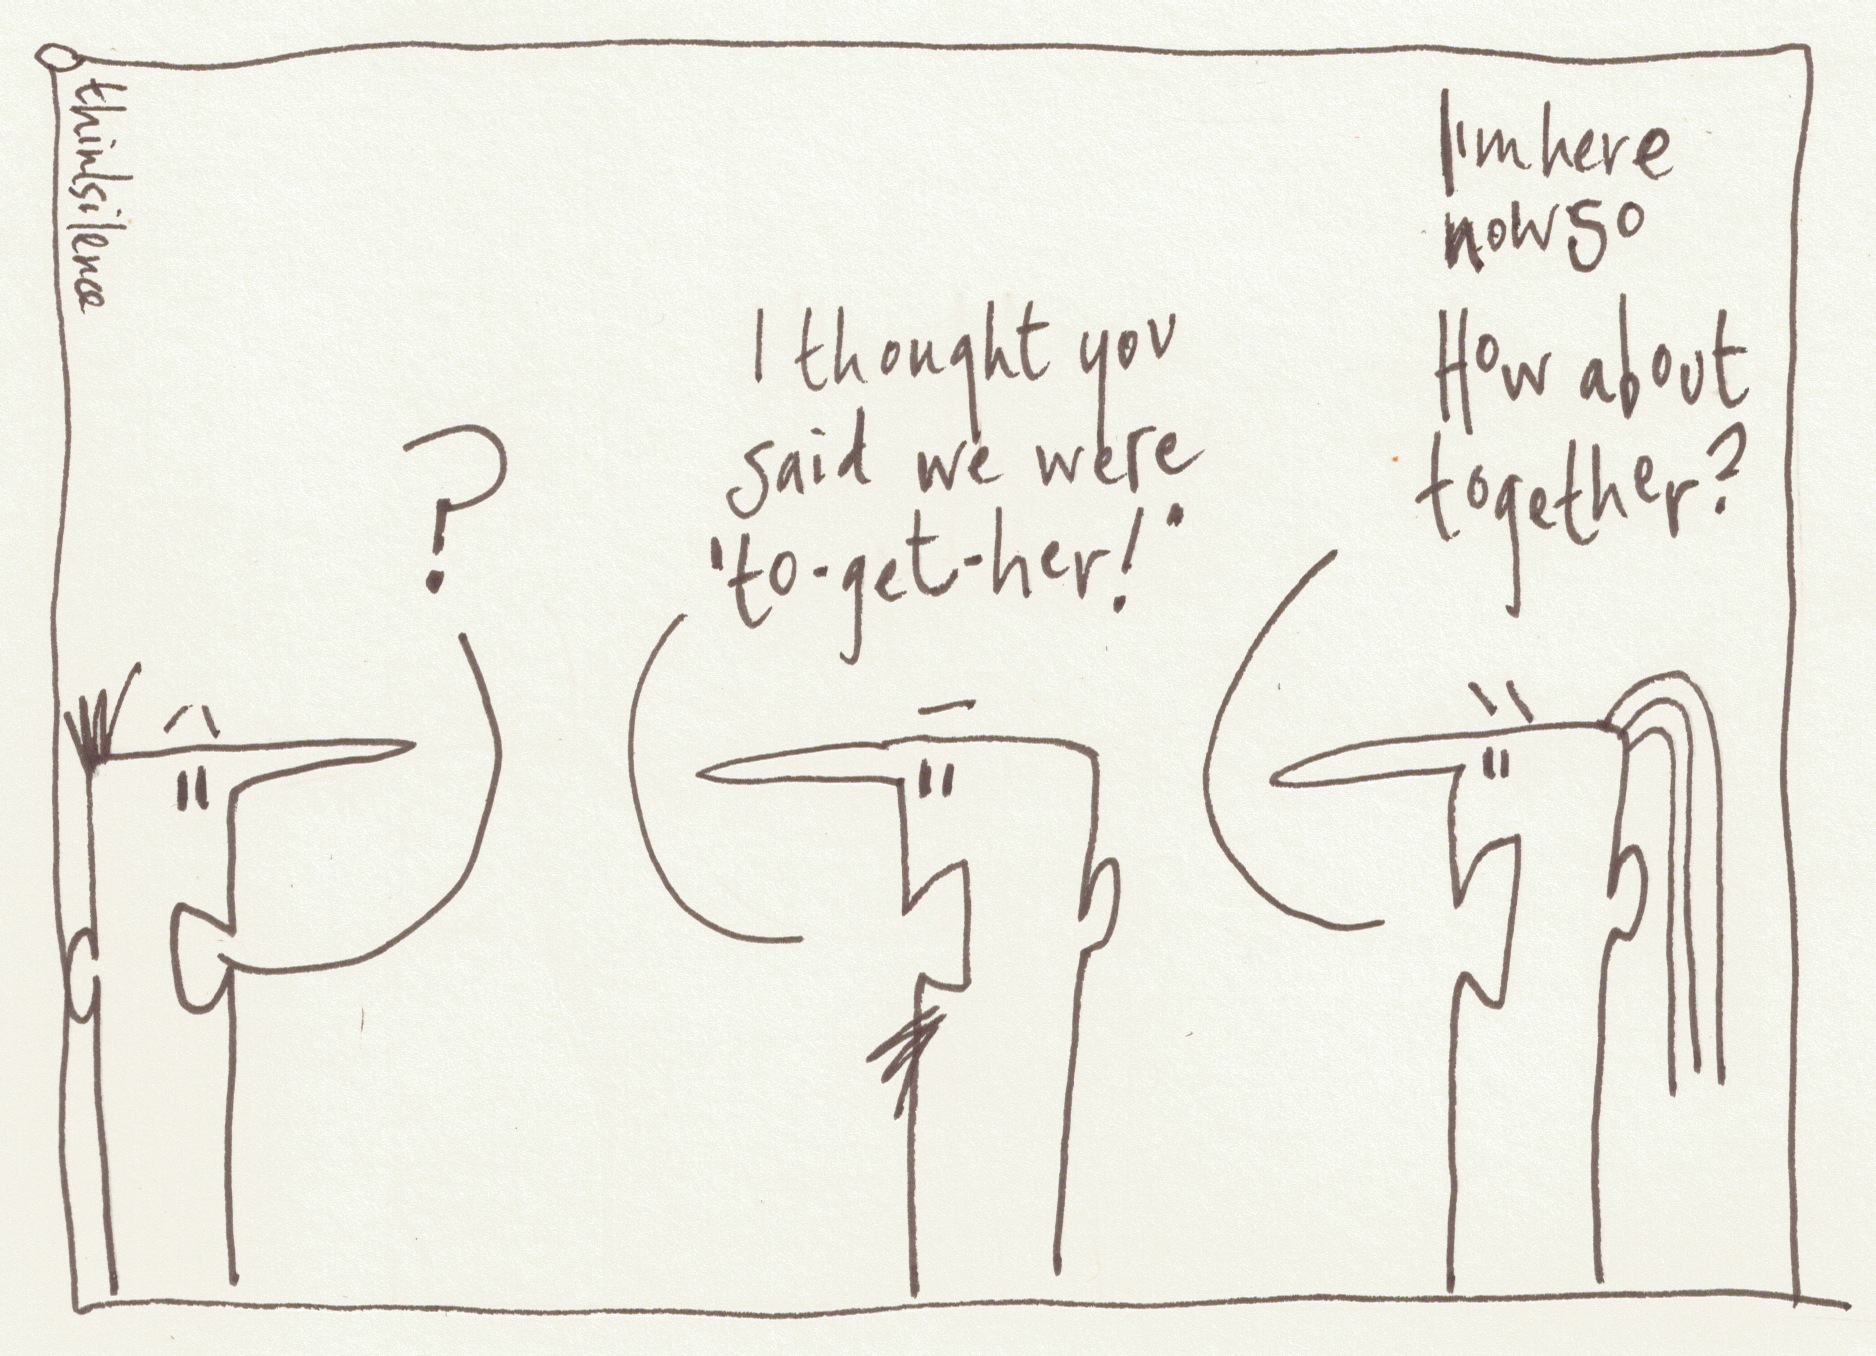 thinksilence
?
I thought you
said we were
"to-get-her!"
I'm here
now so
How about
together?